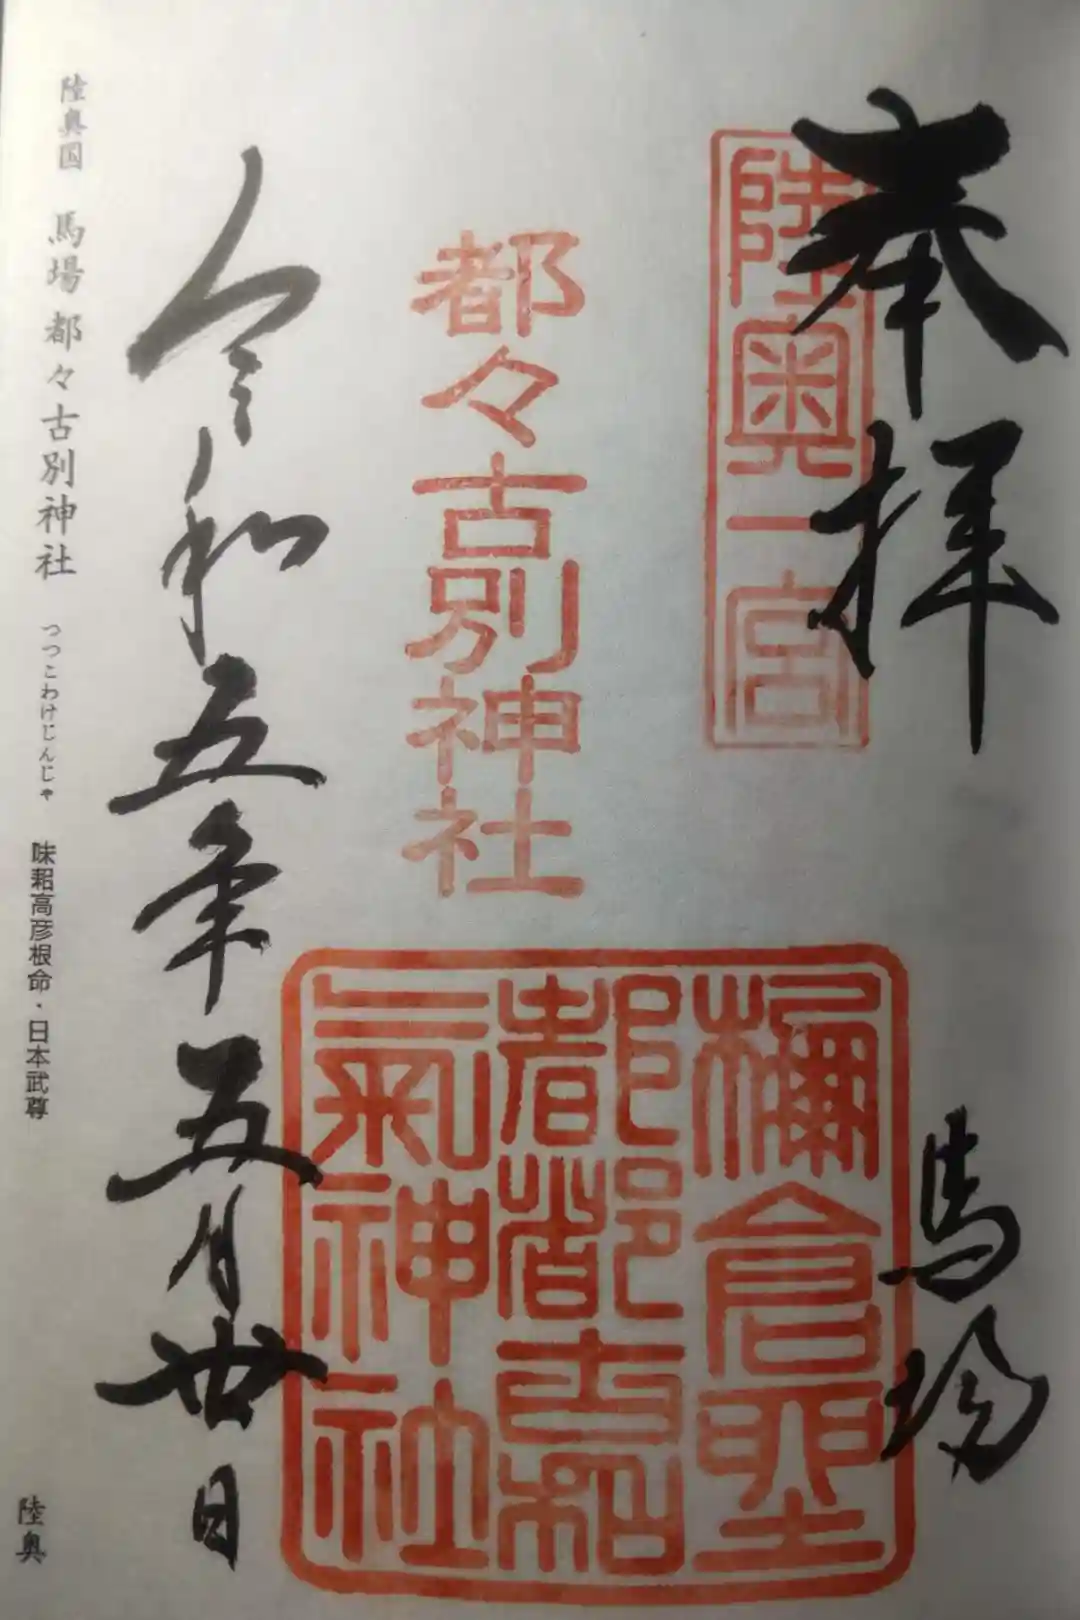 奉拝
馬場
陸奥一宮
都々古別神社
倉
都都古和
氣神社
令和五年五月丗日
陸奥国 馬場都々古別神社 つつこわけじんじゃ 味耜高彦根命・日本武尊
陸奥